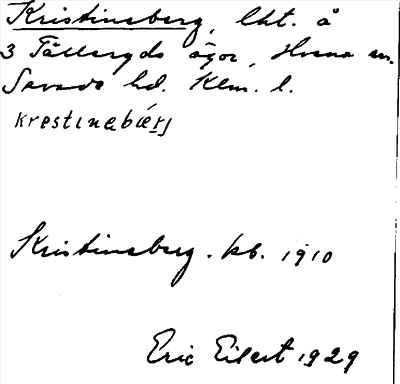 Kristinaberg, lht. å
3 Tålleryds ägor, Hvena sn.
Sevede hd. Klm. l.
krestinabærj
Kristinaberg. kb. 1910
Eric Eilert 1929